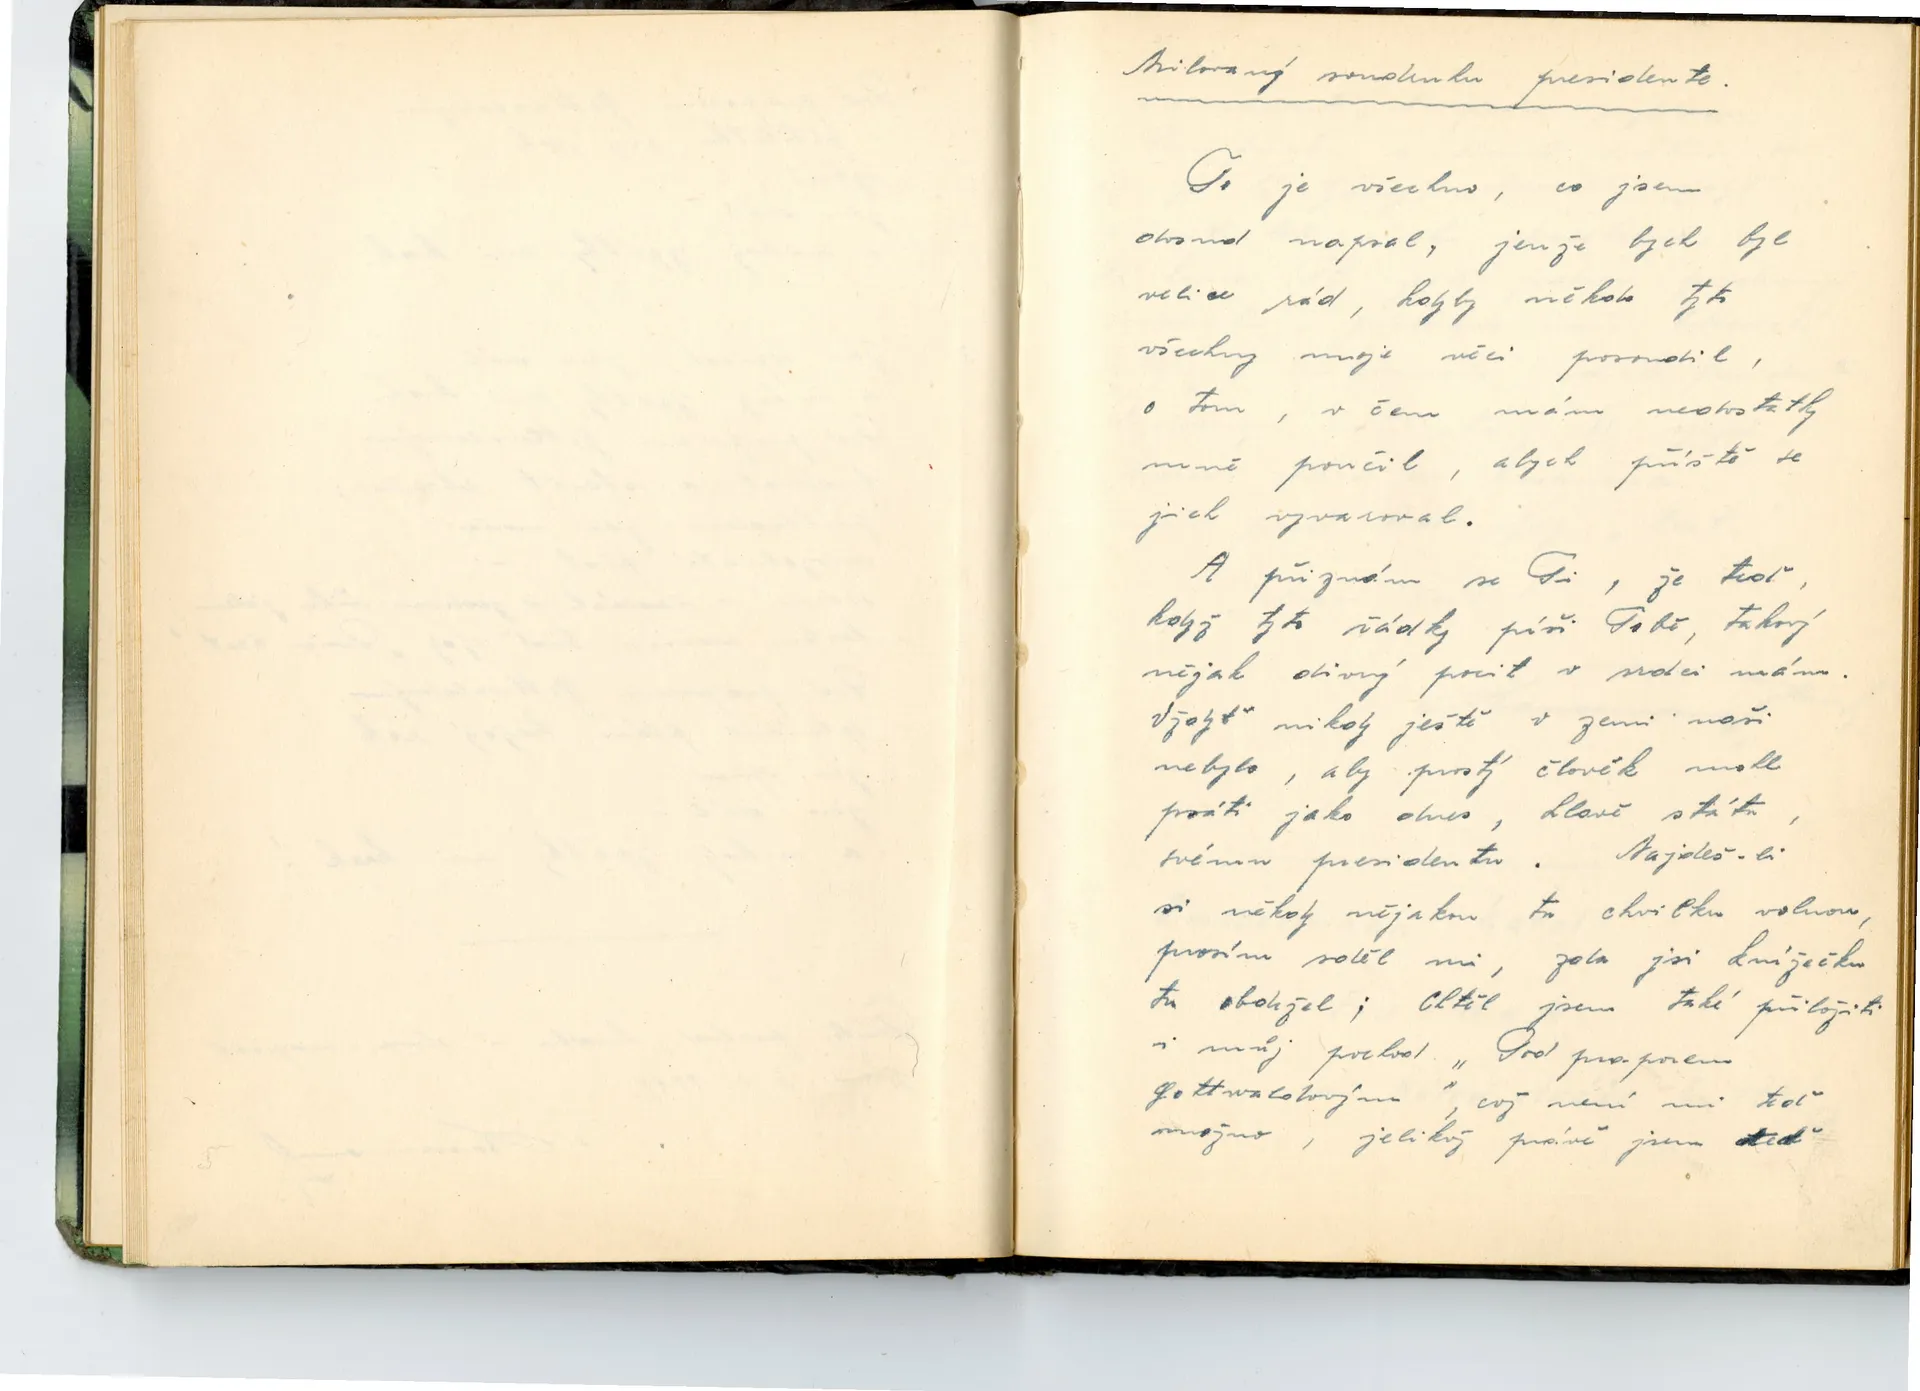 Milovaný soudruhu presidente.
To je všechno, co jsem
dosud napsal, jenže bych byl
velice rád, kdyby někdo tyto
všechny moje věci posoudil,
o tom, v čem mám nedostatky
mně poučil, abych příště se
jich vyvaroval.
A přiznám se Ti, že teď,
když tyto řádky píši Tobě, takový
nějak divný pocit v srdci mám.
Vždyť nikdy ještě v zemi naší
nebylo, aby prostý člověk mohl
psáti jako dnes, hlavě státu,
svému presidentu. Najdeš-li
si někdy nějakou tu chvilku volnou,
prosím sděl mi, zda jsi knížečku
tu obdržel; Chtěl jsem také přiložiti
i můj pochod „Pod praporem
gottwaldovým", což není mi teď
možno, jelikož právě jsem teď